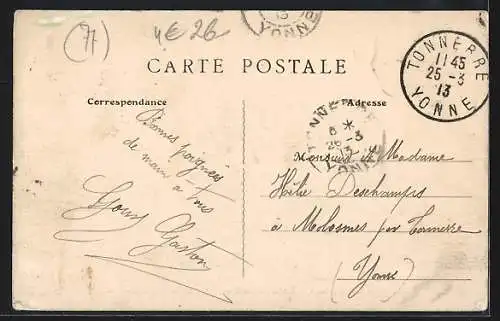 (77)
4€ 26
13
YONNE
CARTE POSTALE
TONNERRE
11 45
25 - 3
13
YONNE
Correspondance
Adresse
TONNERRE
6 *
26 - 3
13
YONNE
Bonnes poignées
de main à tous
Gaston
Monsieur et Madame
Hélie Deschamps
à Molosmes par Tonnerre
(Yonne)